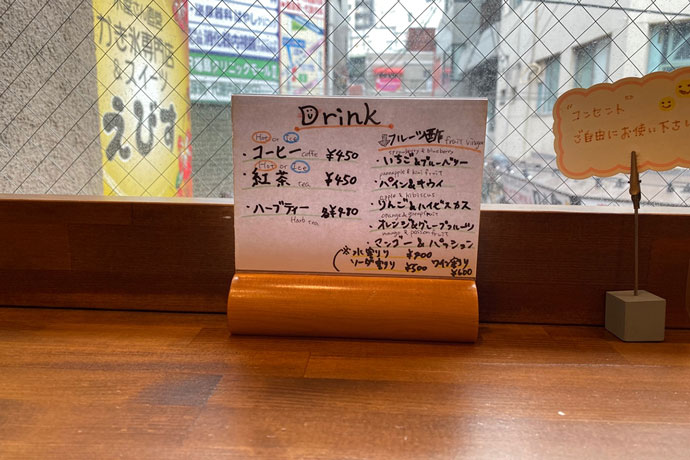 かき氷専門店
&スイーツ
えびす
Drink
Hot or Ice
・コーヒー coffe ¥450
Hot or Ice
・紅茶 tea ¥450
・ハーブティー ¥480
Harb tea
フルーツ酢 fruit vinegar
strawberry & blueberry
・いちご&ブルーベリー
pineapple & kiwi fruit
・パイン&キウイ
apple & hibiscus
・りんご&ハイビスカス
orange & grapefruit
・オレンジ&グレープフルーツ
mango & passion fruit
・マンゴー&パッション
※水割り ¥400
ソーダ割り ¥500 ワイン割り ¥600
"コンセント"
ご自由にお使い下さい